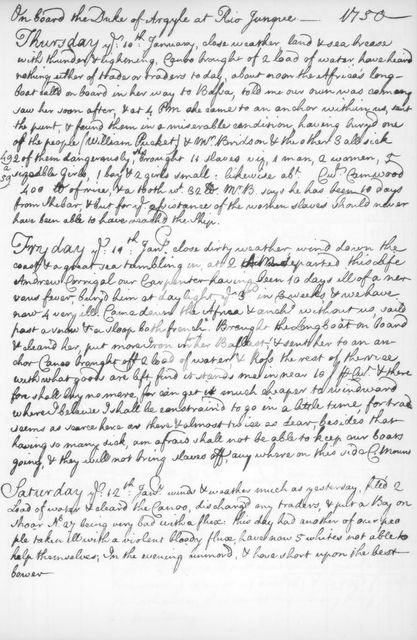 On board the Duke of Argyle at Rio Jungue — 1750
Thursday ye. 10th January, close weather land & sea breese
with thunder & lightening. Canoo brought of 2 load of water have heard
nothing either of trade or traders to day, about noon the Affrica's long-
boat call'd on board in her way to Bassa, told me our own was coming
saw her soon after, & at 4 PM she came to an anchor within us, sent
the punt, & found them in a miserable condition having buryd one
of the people (William Pucket) & Mr. Bridson & the other 3 all sick
49 2 of them dangerously, brought 11 slaves viz, 1 man, 2 women, 5
a sizeable Girls, 1 boy & 2 girls small: likewise abt. Cwt. Camwood
59 400 lb of rice, & a tooth wt. 32 lb Mr. B. says he has been 10 days
from Shebar & but for ye. assistance of the women slaves should never
have been able to have reach'd the Ship.
Fryday ye. 11th Jany. close dirty weather wind down the
coast & a great sea tumbling in, at 2 departed this life
Andrew Corrigal our Carpenter having been 10 days ill of a ner-
vous fever, buryd him at daylight, ye. 3d in 3 weeks & we have
now 4 very ill. Came down the Affrica & anchd. without us, saild
past a snow & a sloop both french. Brought the Longboat on board
& cleand her, put more Iron in her Ballast & sent her to an an-
chor Canoo brought off 2 load of water & Ross the rest of the rice,
with what goods are left find it stands me in near 10 & there
fore shall buy no more, for can get it much cheaper to windward
where I beleive I shall be constraind to go in a little time, for trade
seems as scarce here as there & almost twice as dear, besides that
having so many sick, am afraid shall not be able to keep our boats
going, & they will not bring slaves off any where on this side C: Mount
Saturday ye. 12th Jany. winds & weather much as yesterday, filed 2
Load of water & cleard the Canoo, discharg'd my traders, & put a Boy on
shoar No. 27 being very bad with a flux. this day had another of our peo
ple taken ill with a violent bloody flux, have now 5 whites not able to
help themselves; In the evening unmoord, & have short upon the best
bower